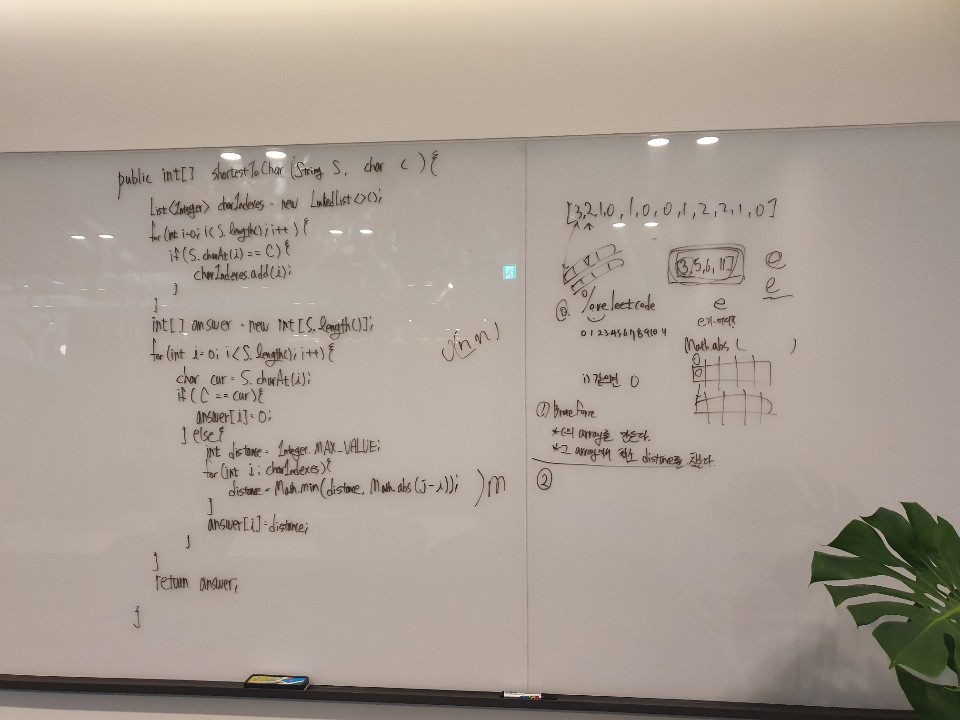 public int[] shortestToChar (String S, char C) {
List<Integer> charIndexes = new LinkedList<>();
for(int i=0; i<S.length(); i++) {
if(S.charAt(i) == C) {
charIndexes.add(i);
}
}
int[] answer = new int[S.length()];
for(int i=0; i<S.length(); i++) {
char cur = S.charAt(i);
if(C == cur){
answer[i]=0;
} else {
int distance = Integer.MAX_VALUE;
for(int j : charIndexes){
distance = Math.min(distance, Math.abs(j-i));
}
answer[i]=distance;
}
}
return answer;
}
O(n m)
)m
[3,2,1,0,1,0,0,1,2,2,1,0]
[3,5,6,11]
e
e
loveleetcode
e
0 1 2 3 4 5 6 7 8 9 10 11
Math.abs ( )
0
0
i) 같으면 0
① Brute Force
*C의 array를 만든다.
*그 array에서 최소 distance를 찾는다.
②